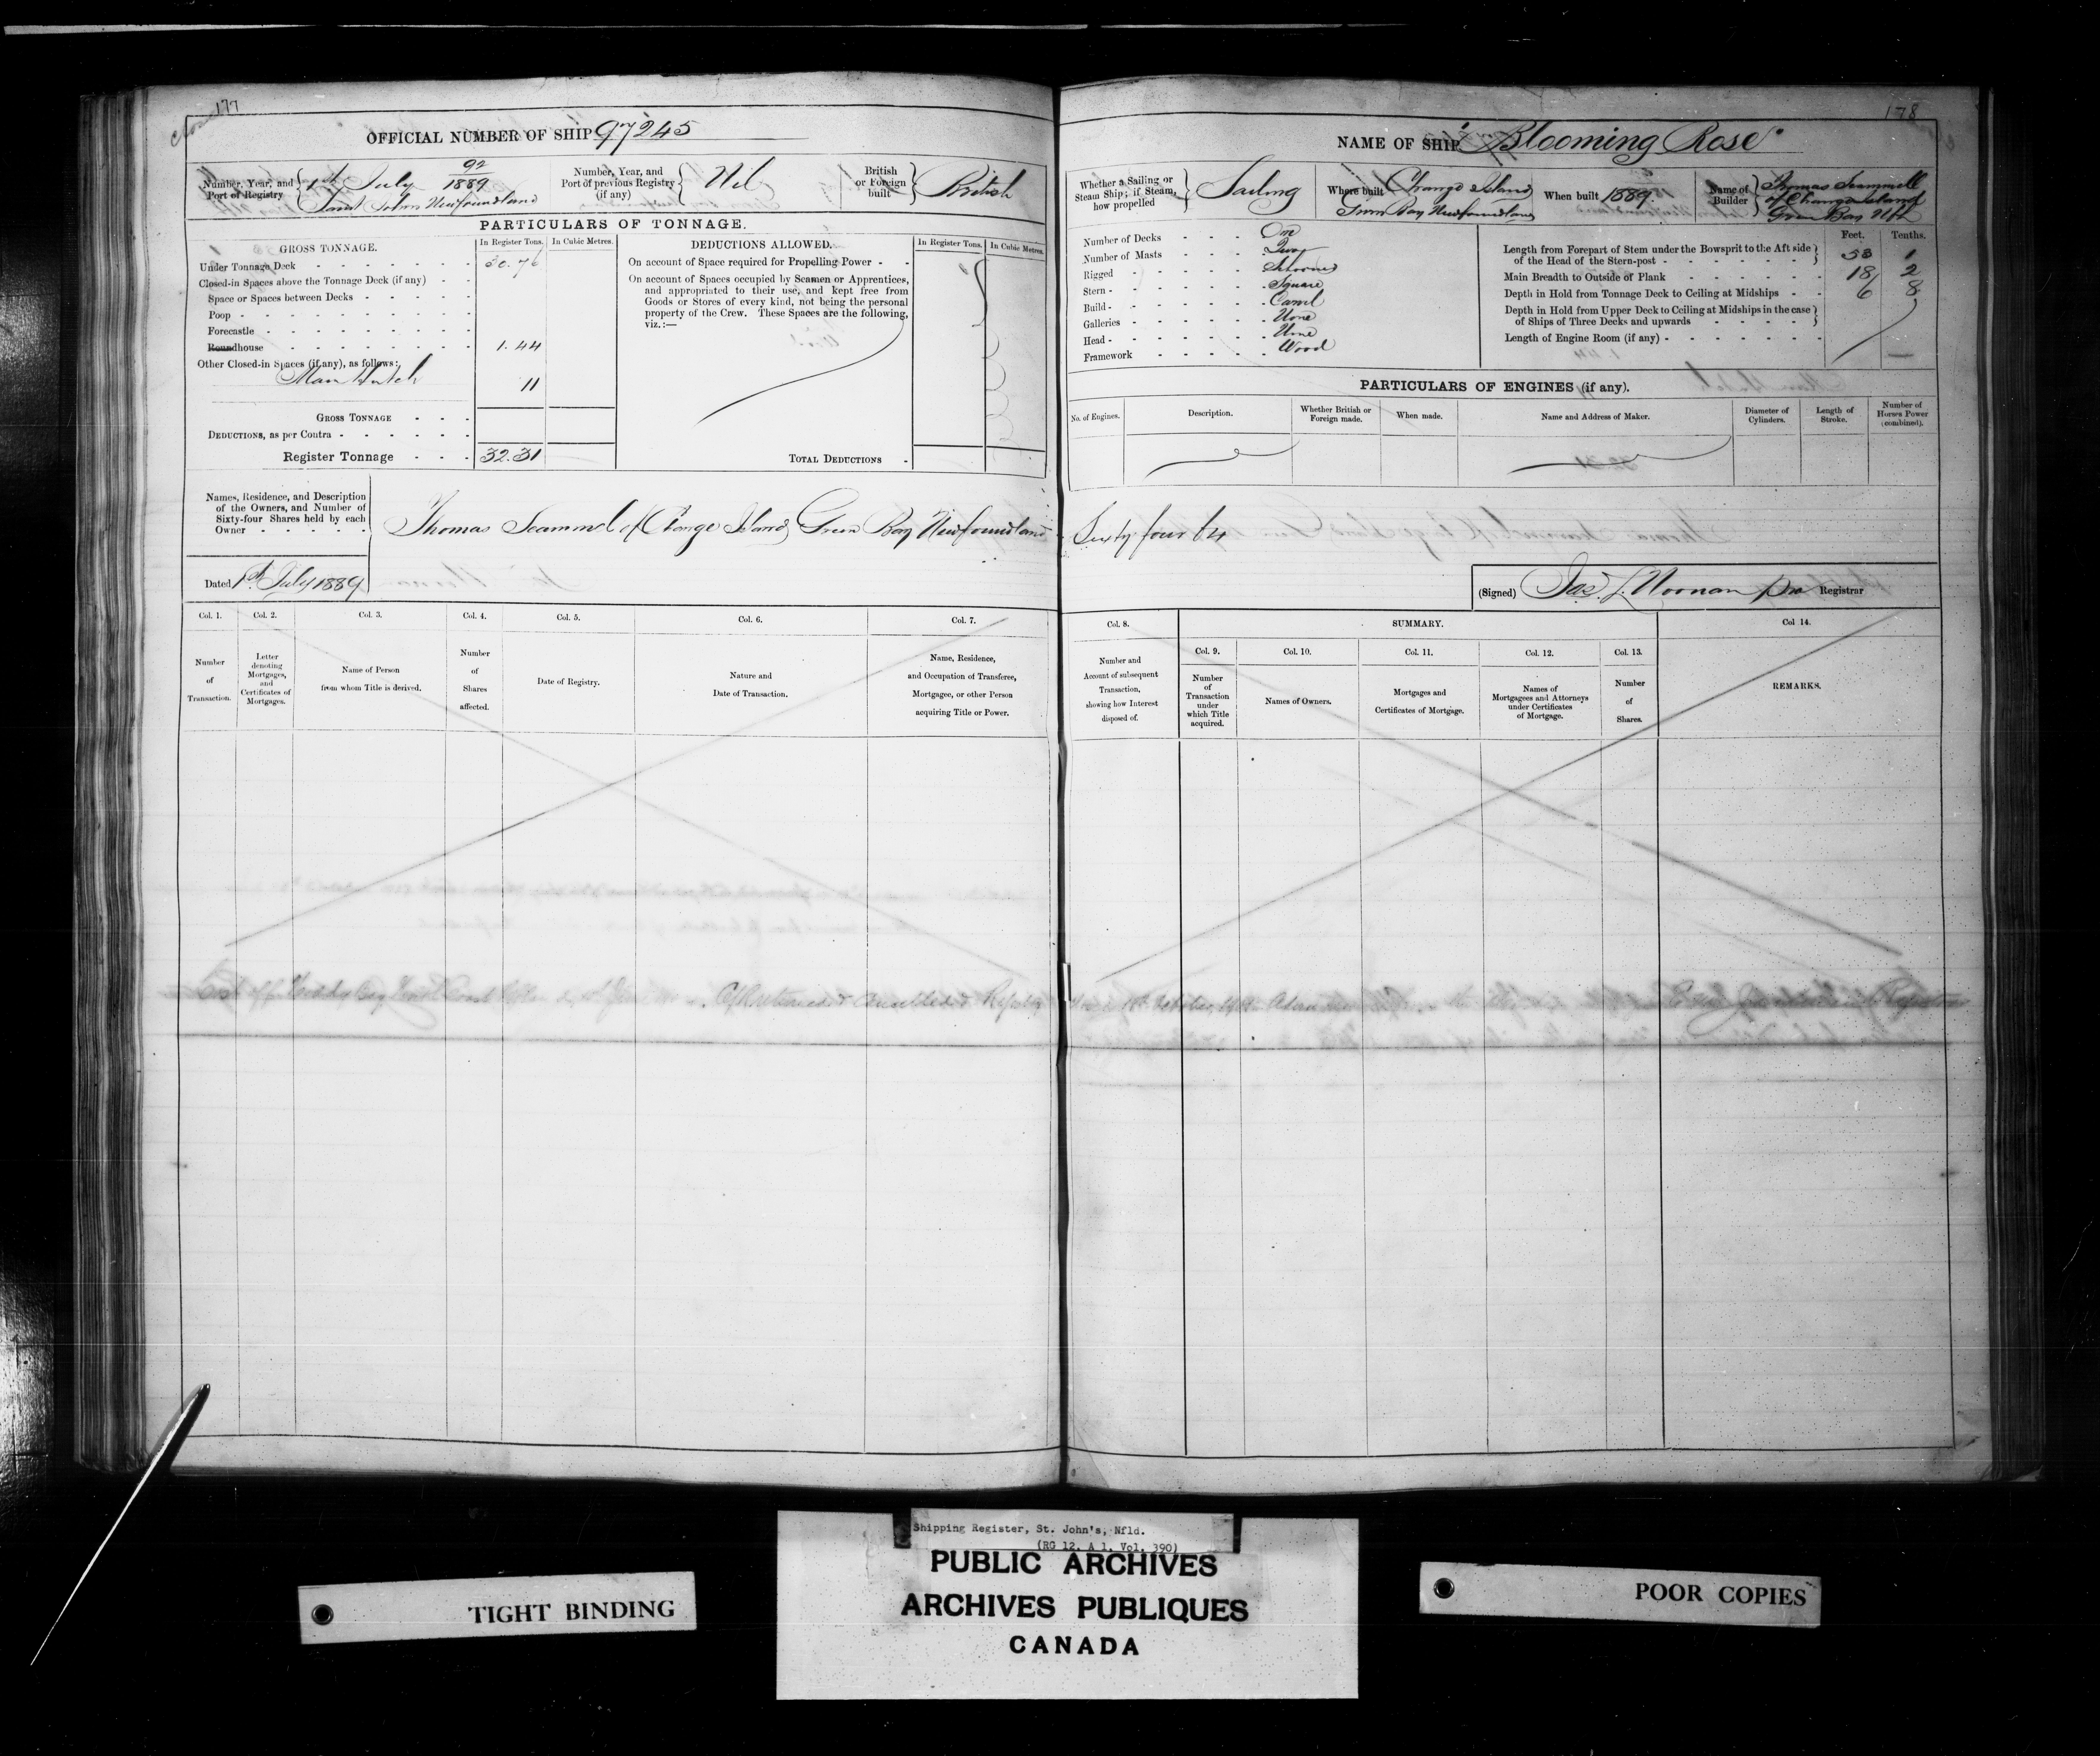 177
Closed
OFFICIAL NUMBER OF SHIP 97245
Number, Year, and Port of Registry
92
1st July 1889
Saint Johns Newfoundland
Number, Year, and Port of previous Registry (if any)
Nil
British or Foreign built
British
PARTICULARS OF TONNAGE.
GROSS TONNAGE.
In Register Tons.
In Cubic Metres.
Under Tonnage Deck 30.76
Closed-in Spaces above the Tonnage Deck (if any)
Space or Spaces between Decks
Poop
Forecastle
Roundhouse 1.44
Other Closed-in Spaces (if any), as follows:
Main Hatch 11
GROSS TONNAGE
DEDUCTIONS, as per Contra
Register Tonnage 32.31
DEDUCTIONS ALLOWED.
In Register Tons.
In Cubic Metres.
On account of Space required for Propelling Power
On account of Spaces occupied by Seamen or Apprentices,
and appropriated to their use, and kept free from
Goods or Stores of every kind, not being the personal
property of the Crew. These Spaces are the following,
viz.:—
TOTAL DEDUCTIONS
Names, Residence, and Description
of the Owners, and Number of
Sixty-four Shares held by each
Owner
Thomas Scammel of Change Island Green Bay Newfoundland
Dated 1st July 1889
Col. 1.
Number
of
Transaction.
Col. 2.
Letter
denoting
Mortgages,
and
Certificates of
Mortgages.
Col. 3.
Name of Person
from whom Title is derived.
Col. 4.
Number
of
Shares
affected.
Col. 5.
Date of Registry.
Col. 6.
Nature and
Date of Transaction.
Col. 7.
Name, Residence,
and Occupation of Transferee,
Mortgagee, or other Person
acquiring Title or Power.
178
NAME OF SHIP "Blooming Rose"
Whether a Sailing or
Steam Ship; if Steam,
how propelled
Sailing
Where built
Change Island
Green Bay Newfoundland
When built 1889.
Name of Builder
Thomas Scammell
of Change Island
Green Bay Nfld
Number of Decks One
Number of Masts Two
Rigged Schooner
Stern Square
Build Carvel
Galleries None
Head None
Framework Wood
Feet. Tenths.
Length from Forepart of Stem under the Bowsprit to the Aft side
of the Head of the Stern-post 53 1
Main Breadth to Outside of Plank 18 2
Depth in Hold from Tonnage Deck to Ceiling at Midships 6 8
Depth in Hold from Upper Deck to Ceiling at Midships in the case
of Ships of Three Decks and upwards
Length of Engine Room (if any)
PARTICULARS OF ENGINES (if any).
No. of Engines.
Description.
Whether British or
Foreign made.
When made.
Name and Address of Maker.
Diameter of
Cylinders.
Length of
Stroke.
Number of
Horses Power
(combined).
Sixty four 64
(Signed) Jas. L. Noonan pro Registrar
Col. 8.
Number and
Account of subsequent
Transaction,
showing how Interest
disposed of.
SUMMARY.
Col. 9.
Number
of
Transaction
under
which Title
acquired.
Col. 10.
Names of Owners.
Col. 11.
Mortgages and
Certificates of Mortgage.
Col. 12.
Names of
Mortgagees and Attorneys
under Certificates
of Mortgage.
Col. 13.
Number
of
Shares.
Col 14.
REMARKS.
Bay cancelled & Registry
Shipping Register, St. John's, Nfld.
(RG 12, A 1, Vol. 390)
PUBLIC ARCHIVES
ARCHIVES PUBLIQUES
CANADA
TIGHT BINDING
POOR COPIES